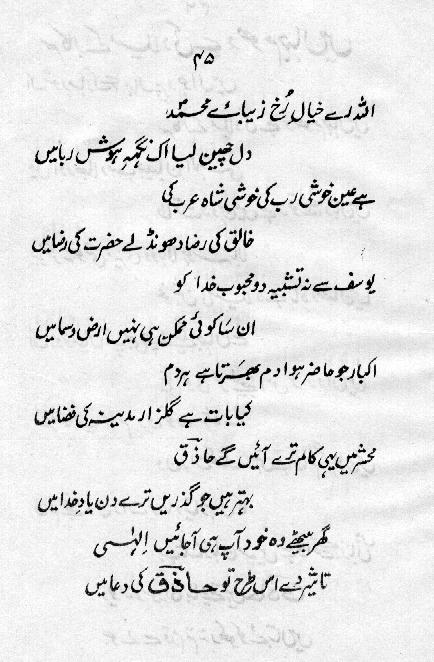 ۴۵
اللہ رے خیالِ رُخِ زیبائے محمدؐ
دل چھین لیا اک نگہِ ہوش ربا میں
ہے عین خوشی رب کی خوشی شاہ عرب کی
خالق کی رضا ڈھونڈ لے حضرت کی رضا میں
یوسف سے نہ تشبیہ دو محبوب خدا کو
ان سا کوئی ممکن ہی نہیں ارض و سما میں
اکبار جو حاضر ہوا دم بھرتا ہے ہر دم
کیا بات ہے گلزار مدینہ کی فضا میں
محشر میں یہی کام ترے آئیں گے حاذقؔ
بہتر ہیں جو گذریں ترے دن یادِ خدا میں
گھر بیٹھے وہ خود آپ ہی آجائیں اِلٰہی
تاثیر دے اس طرح تو حاذقؔ کی دعا میں